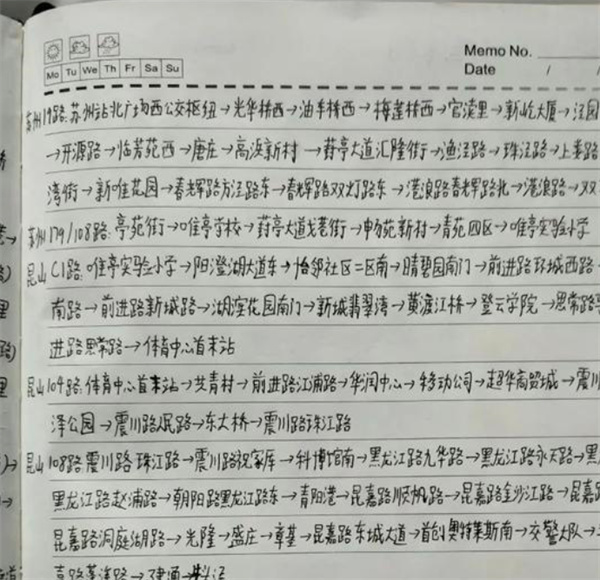 Memo No.
Mo Tu We Th Fr Sa Su
Date / /
苏州19路:苏州站北广场西公交枢纽→光华林西→油车林西→梅建林西→官渎里→新屹大厦→泾园
→开源路→怡芳苑西→唐庄→高浜新村→葑亭大道汇隆街→渔泾路→珠泾路→上委路
湾街→新唯花园→春辉路方泾路东→春辉路双灯路东→港浪路春辉路北→港浪路→双
苏州179/108路:亭苑街→唯亭学校→葑亭大道戈巷街→畅苑新村→青苑四区→唯亭实验小学
昆山C1路:唯亭实验小学→阳澄湖大道东→怡邻社区二区南→晴碧园南门→前进路环城西路
南路→前进路新城路→湖滨花园南门→新城翡翠湾→黄渡江桥→登云学院→思常路
进路思常路→体育中心首末站
昆山104路:体育中心首末站→共青村→前进路江浦路→华润中心→移动公司→超华商贸城→震川
泽公园→震川路人民路→东大桥→震川路珠江路
昆山108路:震川路珠江路→震川路祝家厍→科博馆南→黑龙江路九华路→黑龙江路永天路→黑
黑龙江路赵浦路→朝阳路黑龙江路东→青阳港→昆嘉路顺帆路→昆嘉路金沙江路→昆嘉
昆嘉路洞庭湖路→光隆→盛庄→章基→昆嘉路东城大道→首创奥特莱斯南→交警大队→